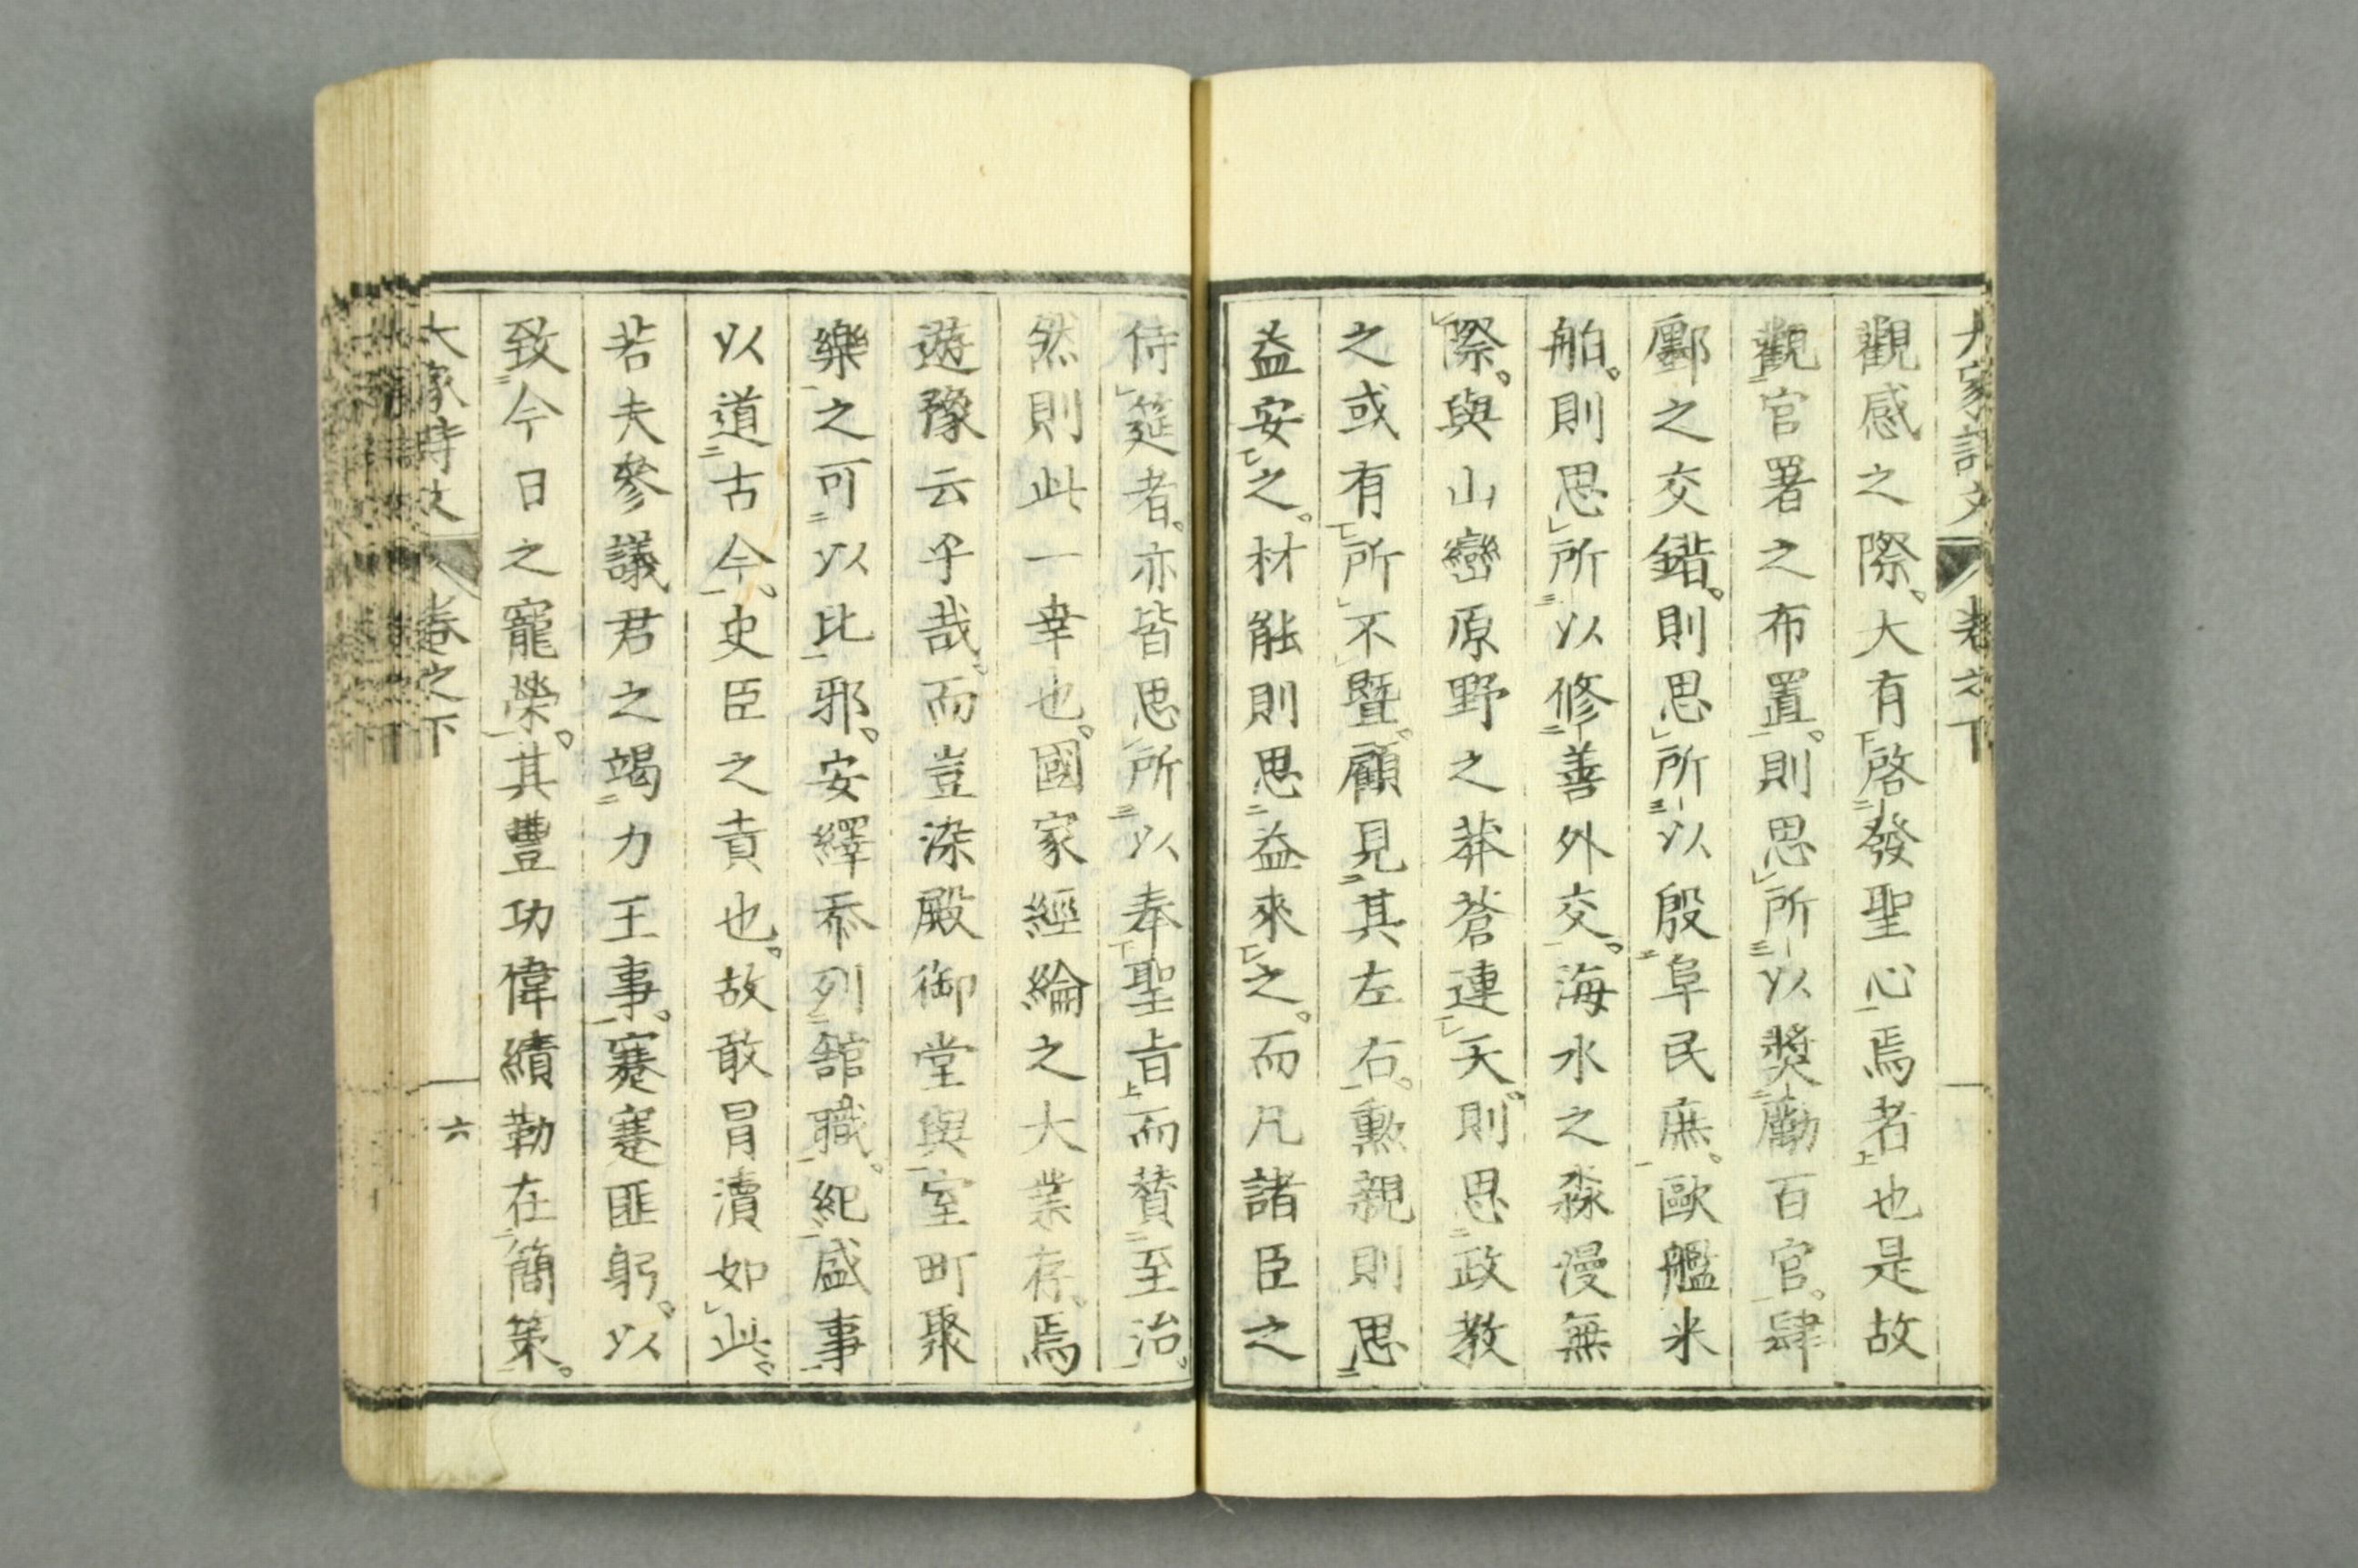 大家時文 卷之下
觀感之際。大有啓發聖心焉者也是故
觀官署之布置。則思所以奬勵百官。肆
鄽之交錯。則思所以殷阜民庶。歐艦米
舶。則思所以修善外交。海水之淼漫無
際。與山巒原野之莽蒼連天。則思政教
之或有所不暨。顧見其左右。勳親則思
益安之。材能則思益來之。而凡諸臣之
侍筵者。亦皆思所以奉聖旨而贊至治。
然則此一幸也。國家經綸之大業存。焉
遊豫云乎哉。而豈染殿御堂與室町聚
樂之可以比邪。安繹忝列舘職。紀盛事
以道古今。史臣之責也。故敢冒瀆如此。
若夫參議君之竭力王事。蹇蹇匪躬。以
致今日之寵榮。其豐功偉績勒在簡策。
大家時文 卷之下 六